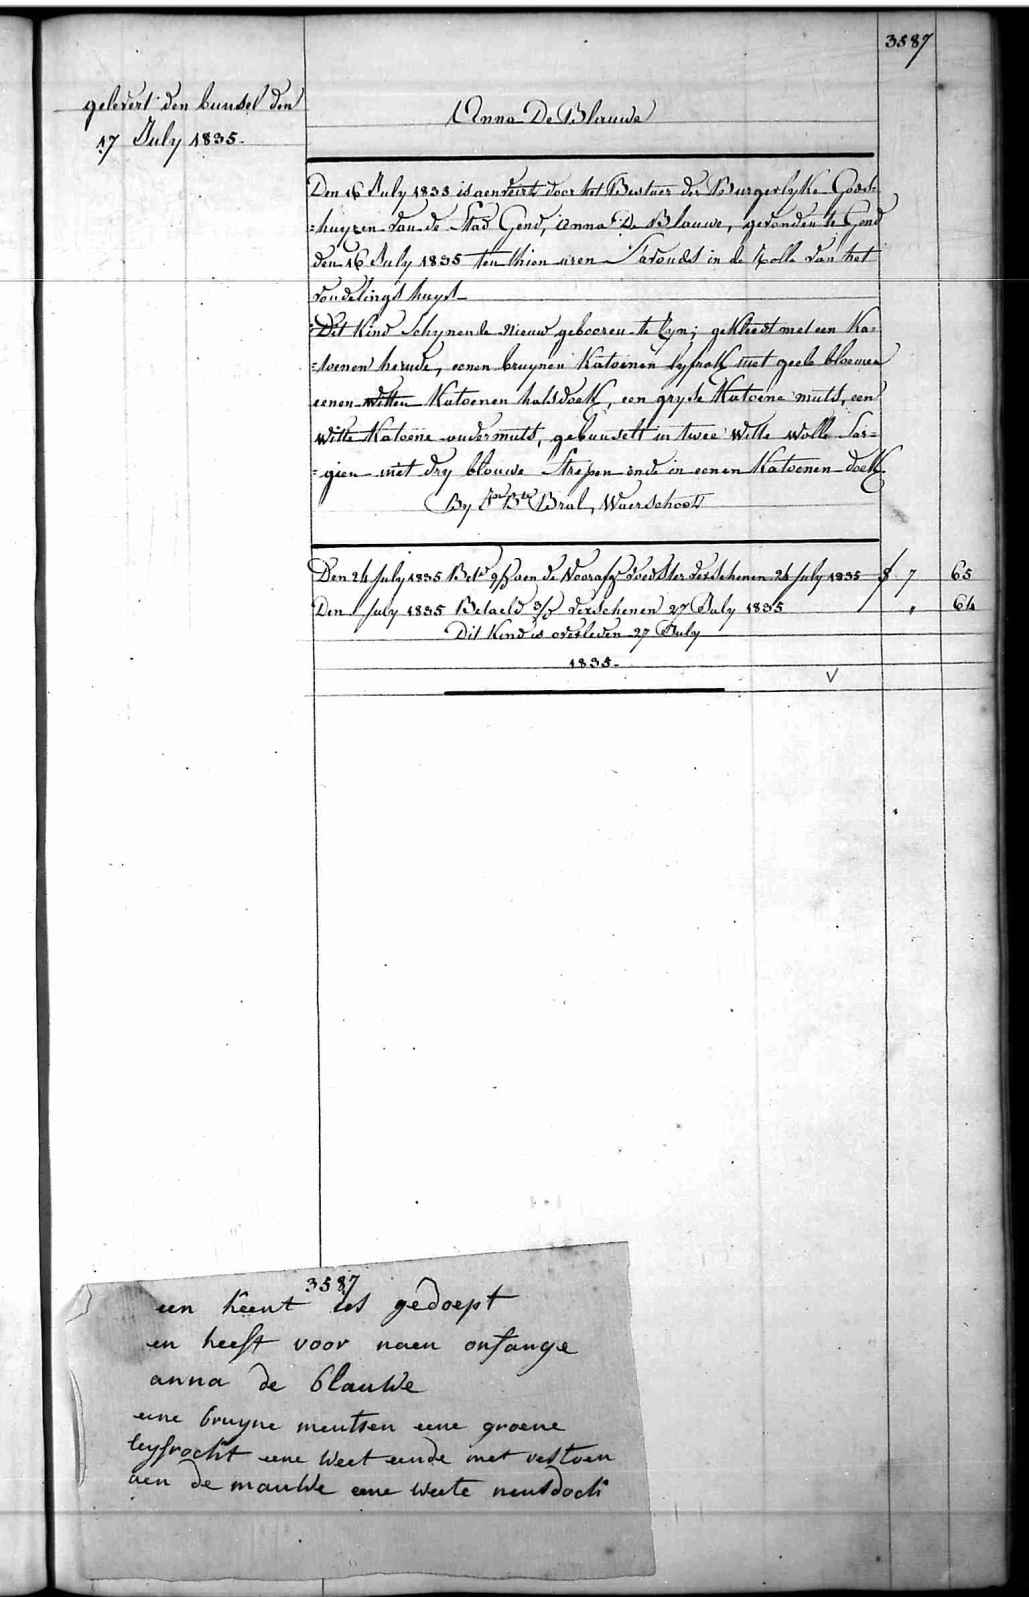 3587
gelevert den bunsel den
17 July 1835.
Anna De Blauwe
Den 16 July 1835 is aenveirt door het Bestuer der Burgerlyke Gods=
=huyzen van de Stad Gend, Anna De Blauwe, gevonden te Gend
den 16 July 1835 ten thien uren S'avonds in de Rolle van het
vondelings huys
Dit Kind Schynende nieuw gebooren te zyn; gekleedt met een Ka=
=toenen hemde, eenen bruynen Katoenen lyfrok met geele bloemen
eenen witten Katoenen halsdoek, een gryse Katoene muts, een
witte Katoene ondermuts, gebunselt in twee witte wolle Sar=
=gien met dry blouwe Strepen ende in eenen Katoenen doek
By Bte Bral, Waerschoot
Den 24 July 1835 Bete aen de Voorafge voedster verschenen 24 July 1835 f 7 65
Den July 1835 Betaeld verschenen 27 July 1835 " 64
Dit Kind is overleden 27 July
1835.
V
3587
een keent es gedoept
en heeft voor naem onfange
anna de blauwe
eene bruyne meutsen eene groene
leyfrocht eene weet eende met vestoen
aen de mauwe eene weete neusdoch